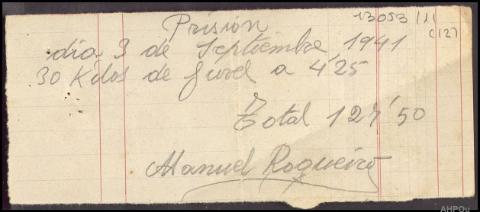 Prisión
13053/11
(12)
día 3 de Septiembre 1941
30 Kilos de furel a 4'25
Total 127'50
Manuel Roqueiro
AHPOu